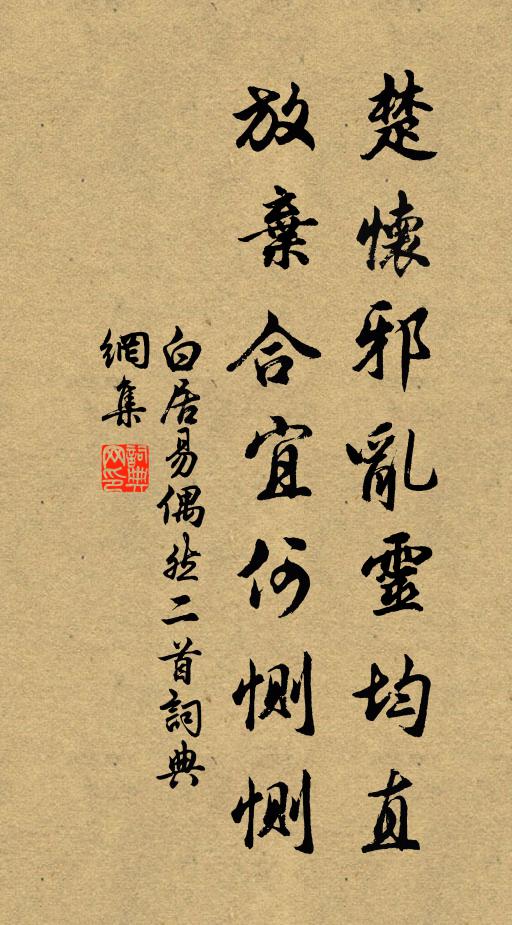 楚懷邪亂靈均直
放棄合宜何惻惻
白居易偶然二首詞典
網集
詞典網印